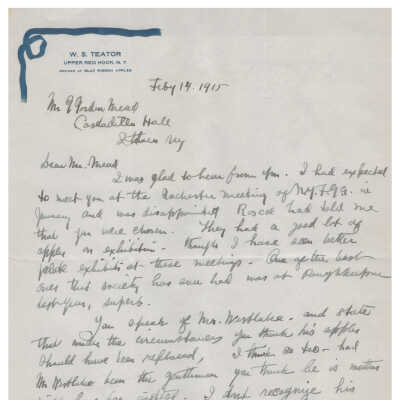 W. S. TEATOR
UPPER RED HOOK, N. Y.
GROWER OF BLUE RIBBON APPLES
Feby 14. 1915
Mr G Gordon Mead
Cascadilla Hall
Ithaca Ny
Dear Mr. Mead
I was glad to hear from you. I had expected
to meet you at the Rochester meeting of N.Y.F.G.A. in
January and was disappointed. Roscoe had told me
that you were chosen. They had a good lot of
apples on exhibition. Though I have seen better
plate exhibits at these meetings. One of the best
ever that society has ever had was at Poughkeepsie
last year, superb.
You speak of Mr. - and state
that under the circumstances you think his apples
should have been replaced, I think so too - had
Mr been the gentleman you think he is
. I don't recognize his